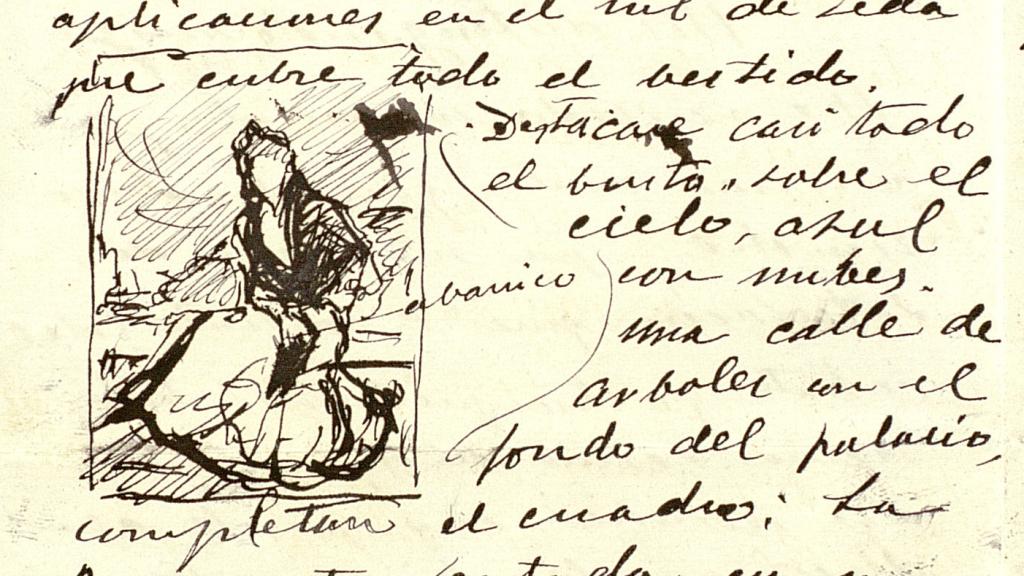 aplicaciones en el tul de seda
que cubre todo el vestido.
Destácase casi todo
el busto, sobre el
cielo, azul
abanico
con nubes.
una calle de
arboles con el
fondo del palacio,
completan el cuadro; La